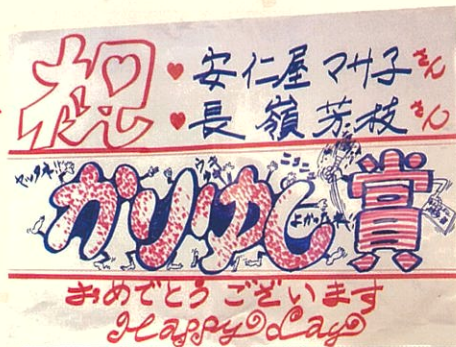 祝
・安仁屋マサ子さん
・長嶺芳枝さん
ヤッタネ!!
うきうき
ニコニコ
よかったネ!!
かりゆし賞
おめでとうございます
Happy Day